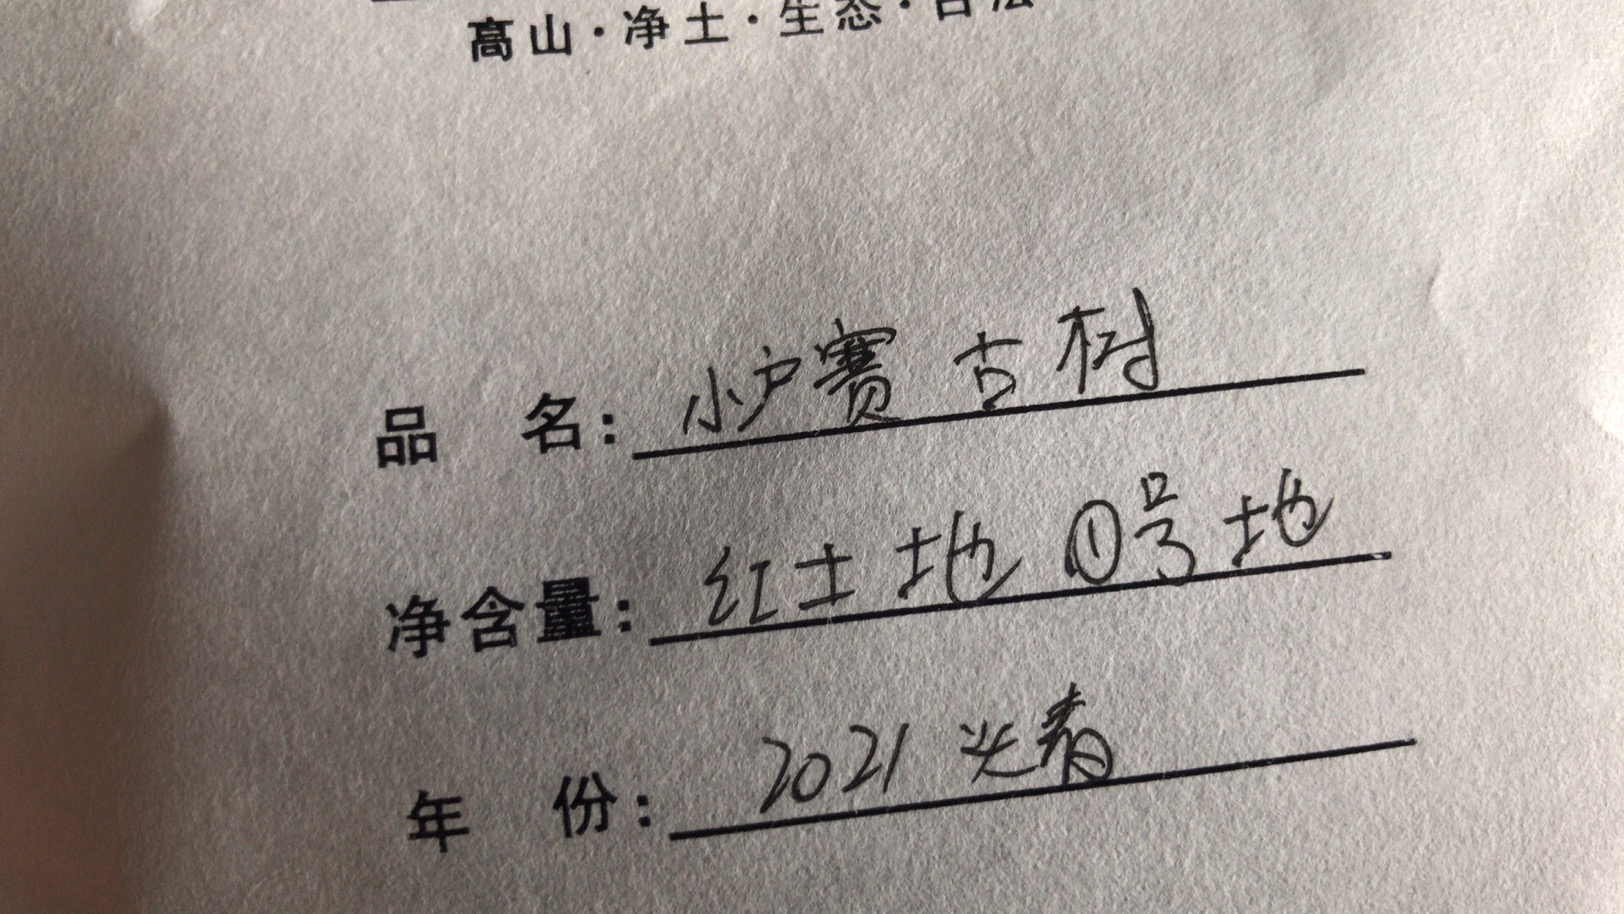 高山·净土·生态·古法
品 名: 小户赛 古树
净含量: 红土地 ①号地
年 份: 2021 头春